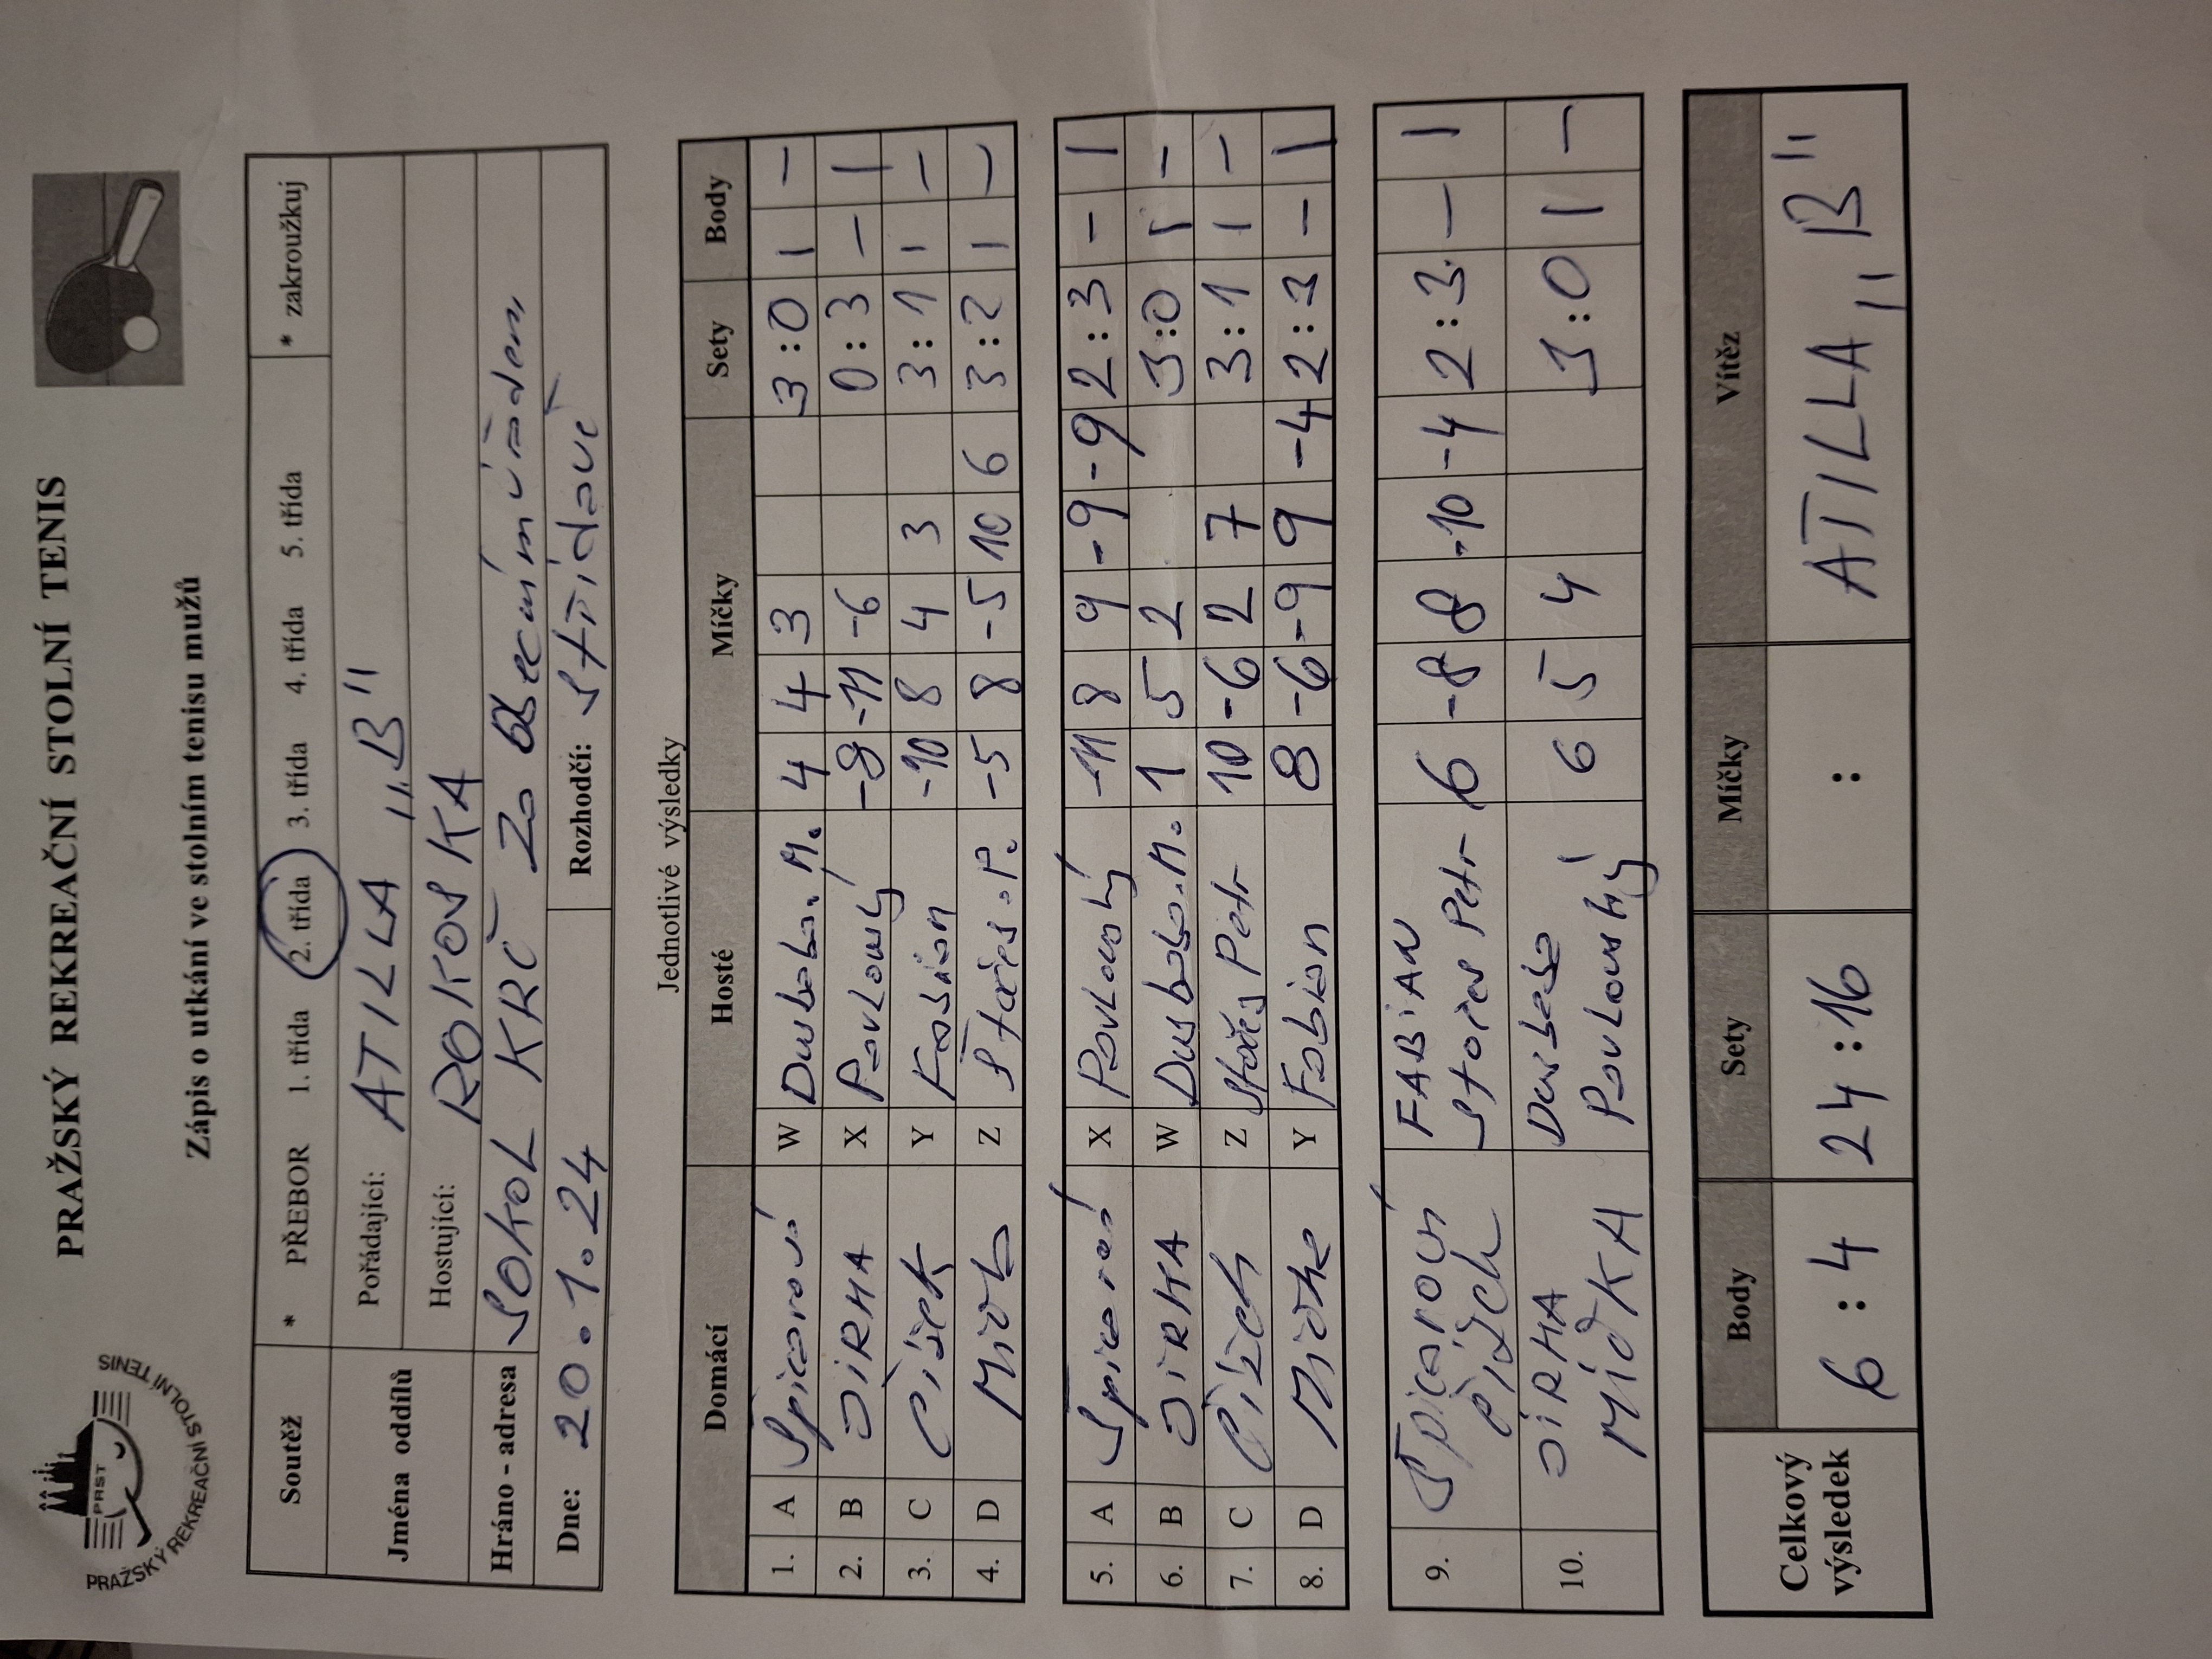 PRAŽSKÝ REKREAČNÍ STOLNÍ TENIS
PRST
PRAŽSKÝ REKREAČNÍ STOLNÍ TENIS
Zápis o utkání ve stolním tenisu mužů
Soutěž * PŘEBOR 1. třída 2. třída 3. třída 4. třída 5. třída * zakroužkuj
Jména oddílů Pořádající: ATILLA „B"
Hostující: ROKOSKA
Hráno - adresa SOKOL KRČ Za obecním úřadem
Dne: 20.1.24 Rozhodčí: střídavě
Jednotlivé výsledky
Domácí Hosté Míčky Sety Body
1. A W 4 4 3 3:0 1 -
2. B JIRKA X Pavlouský -8 -11 -6 0:3 - 1
3. C Čížek Y Fabian -10 8 4 3 3:1 1 -
4. D Z -5 8 -5 10 6 3:2 1 -
5. A X Pavlouský -11 8 9 -9 -9 2:3 - 1
6. B JIRKA W 1 5 2 3:0 1 -
7. C Čížek Z Petr 10 -6 2 7 3:1 1 -
8. D Y Fabian 8 -6 -9 9 -4 2:3 - 1
9. FABIAN 6 -8 8 -10 -4 2:3 - 1
Čížek Petr
10. JIRKA 6 5 4 3:0 1 -
Pavlouský
Celkový výsledek Body Sety Míčky Vítěz
6:4 24:16 : ATILLA „B"